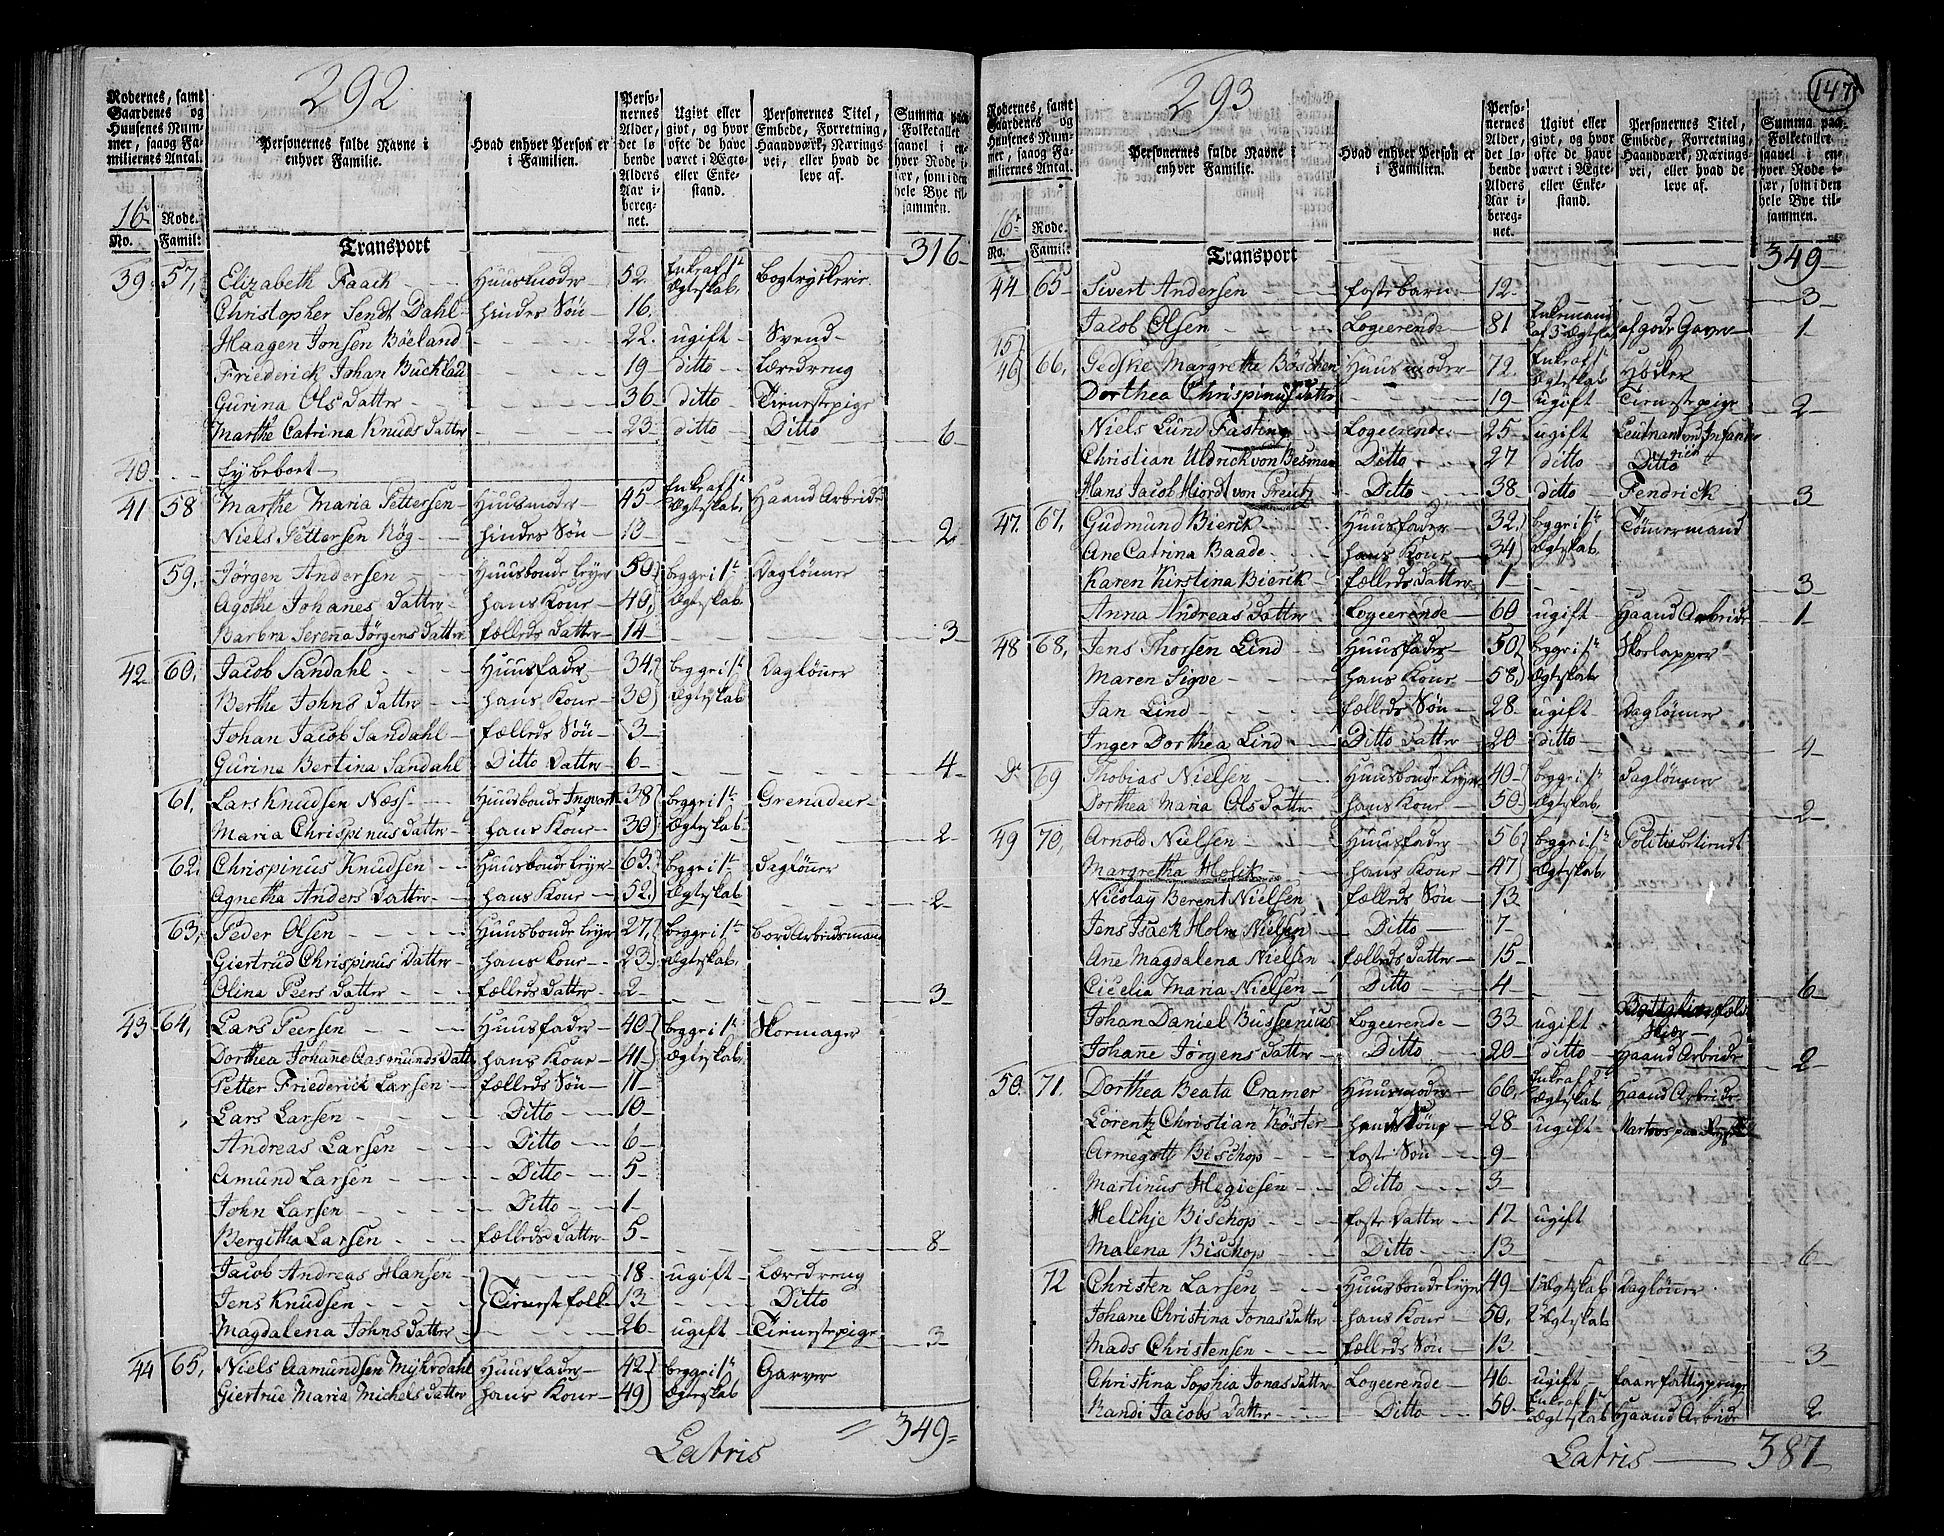 292
Rodernes, samt Gaardenes og Huusenes Nummer, saavg Familiernes Antal.
Personernes fulde Navne i enhver Familie.
Hvad enhver Person er i Familien.
Personernes Alder, det løbende Alders Aar iberegnet.
Ugivt eller givt, og hvor ofte de have været i Ægte- eller Enkestand.
Personernes Titel, Embede, Forretning, Haandværk, Næringsvei, eller hvad de leve af.
Summa paa Folketallet saavel i enhver Rode især, som i den hele Bye tilsammen.
16de Rode.
No. Famil:
Transport 316
39 57, Elizabeth Faaik Huusmoder 52 Enke af 1te Ægteskab. Bogtrykkerie
Christopher Sendt Dahl hindes Søn 16
Haagen Jonsen Böeland 22 ugift Svend
Friederick Johan Bucklau 19 ditto Læredreng
Gurina Ols Datter 36 ditto Tienestepige
Marthe Catrina Knuds Datter 23 ditto Ditto 6
40
41 58 Marthe Maria Pettersen Huusmoder 45 Enke af 1te Ægteskab. Haand Arbeide
Niels Pettersen Nög hindes Søn 13 2
59, Jörgen Andersen Huusbonde 50 begge i 1te Daglønner
Agothe Johañes Datter hans Kone 40 Ægteskab.
Barbra Sereña Jörgens Datter fælleds Datter 14 3
42 60, Jacob Sandahl Huusfader 34 begge i 1te Dagløner
Berthe Johns Datter hans Kone 30 Ægteskab
Johan Jacob Sandahl fælleds Søn 3
Gurine Bertina Sandahl Ditto Datter 6 4
61, Lars Knudsen Næss Huusbonde 38 begge i 1te Grenadeer
Maria Chrispinus Datter hans Kone 30 Ægteskab 2
62. Chrispinus Knudsen Huusbonde 63 begge i 1te Dagløñer
Agnetha Anders Datter hans Kone 52 Ægteskab 2
63, Peder Olsen Huusbonde 27 begge i 1te
Giertrud Chrispinus Datter hans Kone 23 Ægteskab.
Olina Peers Datter fælleds Datter 2 3
43 64, Lars Peersen Huusfader 40 begge i 1te Skoemager
Dorthea Johañe Aasmunds Datter hans Kone 41 Ægteskab
Petter Friederick Larsen fælleds Søn 11
Lars Larsen Ditto 10
Andreas Larsen Ditto 6
Amund Larsen Ditto 5
John Larsen Ditto 1
Bergitha Larsen fælleds Datter 5 8
Jacob Andreas Hansen 18 ugift Læredreng
Jens Knudsen Tienestefolk 13 Ditto
Magdalena Johns Datter 26 ugift Tienestepige 3
44 65, Niels Aamundsen Myhrdahl Huusfader 42 begge i 1te Garver
Giertrue Maria Michels Datter hans Kone 49 Ægteskab
Latris = 349 =
293
147
Rodernes, samt Gaardenes og Huusenes Nummer, saavg Familiernes Antal.
Personernes fulde Navne i enhver Familie.
Hvad enhver Person er i Familien.
Personernes Alder, det løbende Alders Aar iberegnet.
Ugivt eller givt, og hvor ofte de have været i Ægte- eller Enkestand.
Personernes Titel, Embede, Forretning, Haandværk, Næringsvei, eller hvad de leve af.
Summa paa Folketallet saavel i enhver Rode især, som i den hele Bye tilsammen.
16de Rode.
No. Famil:
Transport 349
44 65 Sivert Andersen foste barn 12 3
Jacob Olsen Logeerende 81 Enkemand af 3 Ægtesk. af gode Gaver 1
45 46 66, Gedske Margrethe Böschen Huusmoder 72 Enke af 1te Ægteskab Höker
Dorthea Chrispinus Datter 19 ugift Tienestepige 2
Niels Lund Fasting Logeerende 25 ugift Leutnant ved Infanterien
Christian Uldrick von Besman Ditto 27 ditto Ditto
Hans Jacob Hiort von Preutz Ditto 38 ditto Fendrick 3
47. 67, Gudmund Bierck Huusfader 32 begge i 1te Tömermand
Ane Catrina Baade hans Kone 34 Ægteskab.
Karen Kirstina Bierck fælleds Datter 1 3
Anna Andreas Datter Logeerende 60 ugift Haand Arbeide 1
48 68, Jens Thorsen Lind Huusfader 50 begge i 1te Skoelapper
Maren Sigve hans Kone 58 Ægteskab
Jan Lind fælleds Søn 28 ugift Dagløñer
Inger Dorthea Lind Ditto Datter 20 ditto 4
Do 69 Thobias Nielsen Huusbonde 40 begge i 1te Dagløñer
Dorthea Maria Ols Datter hans Kone 50 Ægteskab 2
49 70, Arnold Nielsen Huusfader 56 begge i 1te Politiebetient
Margretha Holck hans Kone 47 Ægteskab
Nicolay Berent Nielsen fælleds Søn 13
Jens Isack Holm Nielsen Ditto 7
Ane Magdalena Nielsen fælleds Datter 15
Cicelia Maria Nielsen Ditto 4 6
Johan Daniel Bussenius Logeerende 33 ugift
Johañe Jörgens Datter Ditto 20 ditto Haand Arbeide 2
50. 71. Dorthea Beata Cramer Huusmoder 66 Enke af Ægteskab Haand Arbeide
Lorentz Christian Köster 28 ugift
Armegott Bischop foste Søn 9
Martinus Hegiesen Ditto 3
Helchje Bischop foste Datter 17 ugift
Malena Bischop Ditto 13 6
72 Christen Larsen Huusbonde 49 1te Ægteskab Dagløñer
Johañe Christina Jonas Datter hans Kone 50, 2det Ægteskab
Mads Christensen fælleds Søn 13 3
Christina Sophia Jonas Datter Logeerende 46 ugift
Randi Jacobs Datter Ditto 50 Enke af 1te Ægteskab Haand Arbeide 2
Latris 387